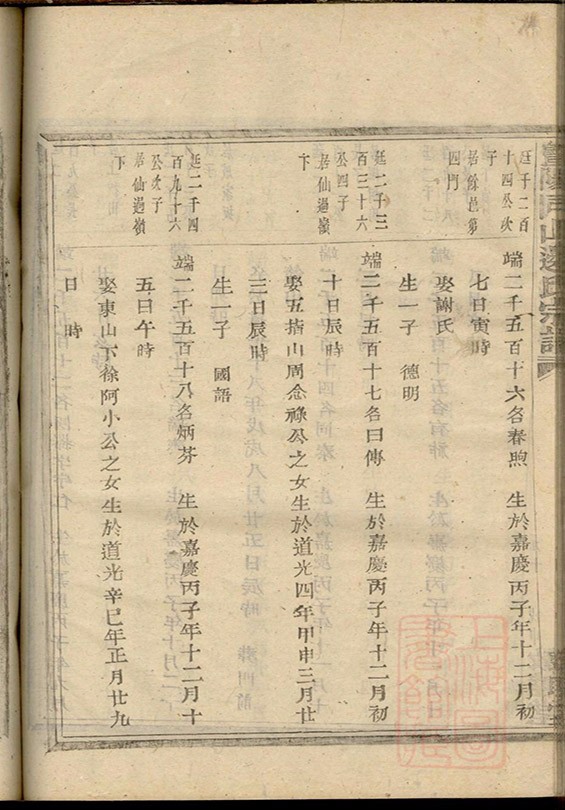 廷千二百
十四公次
子
居餘邑第
四門
端二千五百十六名春煦　生於嘉慶丙子年十二月初
七日寅時
娶謝氏
生一子　德明
廷二千三
百三十六
公四子
居仙過嶺
下
端二千五百十七名曰傳　生於嘉慶丙子年十二月初
十日辰時
娶五指山周念祿公之女生於道光四年甲申三月廿
三日辰時
生一子　國語
廷二千四
百九十六
公次子
居仙過嶺
下
端二千五百十八名炳芬　生於嘉慶丙子年十二月十
五日午時
娶東山下徐阿小公之女生於道光辛巳年正月廿九
日　時